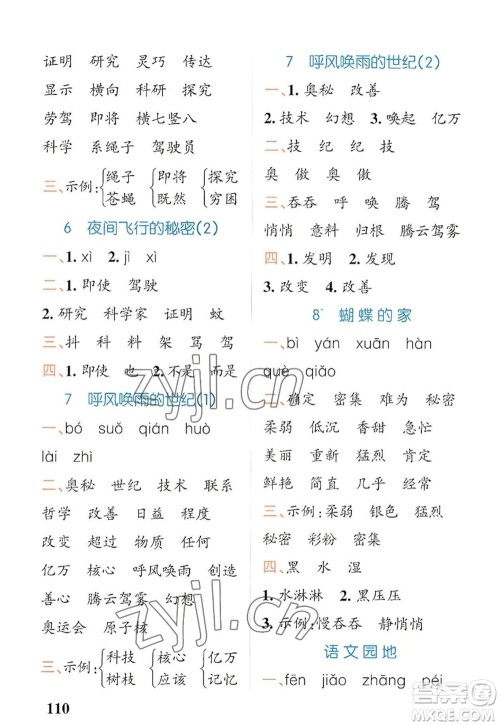 证明 研究 灵巧 传达
显示 横向 科研 探究
劳驾 即将 横七竖八
科学 系绳子 驾驶员
三、示例:{绳子 苍蝇 {即将 既然 {探究 穷困
6 夜间飞行的秘密(2)
一、1. xì 2. jì xì
二、1. 即使 驾驶
2. 研究 科学家 证明 蚊
三、抖 科 料 架 骂 驾
四、1. 即使 也 2. 不是 而是
7 呼风唤雨的世纪(1)
一、bó suǒ qián huò
lài zhì
二、奥秘 世纪 技术 联系
哲学 改善 日益 程度
改变 超过 物质 任何
亿万 核心 呼风唤雨 创造
善心 腾云驾雾 幻想
奥运会 原子核
三、示例:{科技 树枝 {核心 应该 {亿万 记忆
110
7 呼风唤雨的世纪(2)
一、1. 奥秘 改善
2. 技术 幻想 3. 唤起 亿万
二、技 纪 纪 技
奥 傲 奥 傲
三、吞吞 呼 唤 腾 驾
悄悄 意料 归根 腾云驾雾
四、1. 发明 2. 发现
3. 改变 4. 改善
8* 蝴蝶的家
一、bì yán xuān hàn
què qiǎo
二、确定 密集 难为 秘密
柔弱 低沉 香甜 急忙
美丽 重新 震撼 严密
鲜艳 简直 几乎 干燥
三、示例:柔弱 银色 猛烈
秘密 彩粉 密集
四、黑 水 湿
1. 水淋淋 2. 黑压压
3. 示例:慢吞吞 静悄悄
语文园地
一、fēn jiāo zhāng péi
zyjl.cn
答案圈